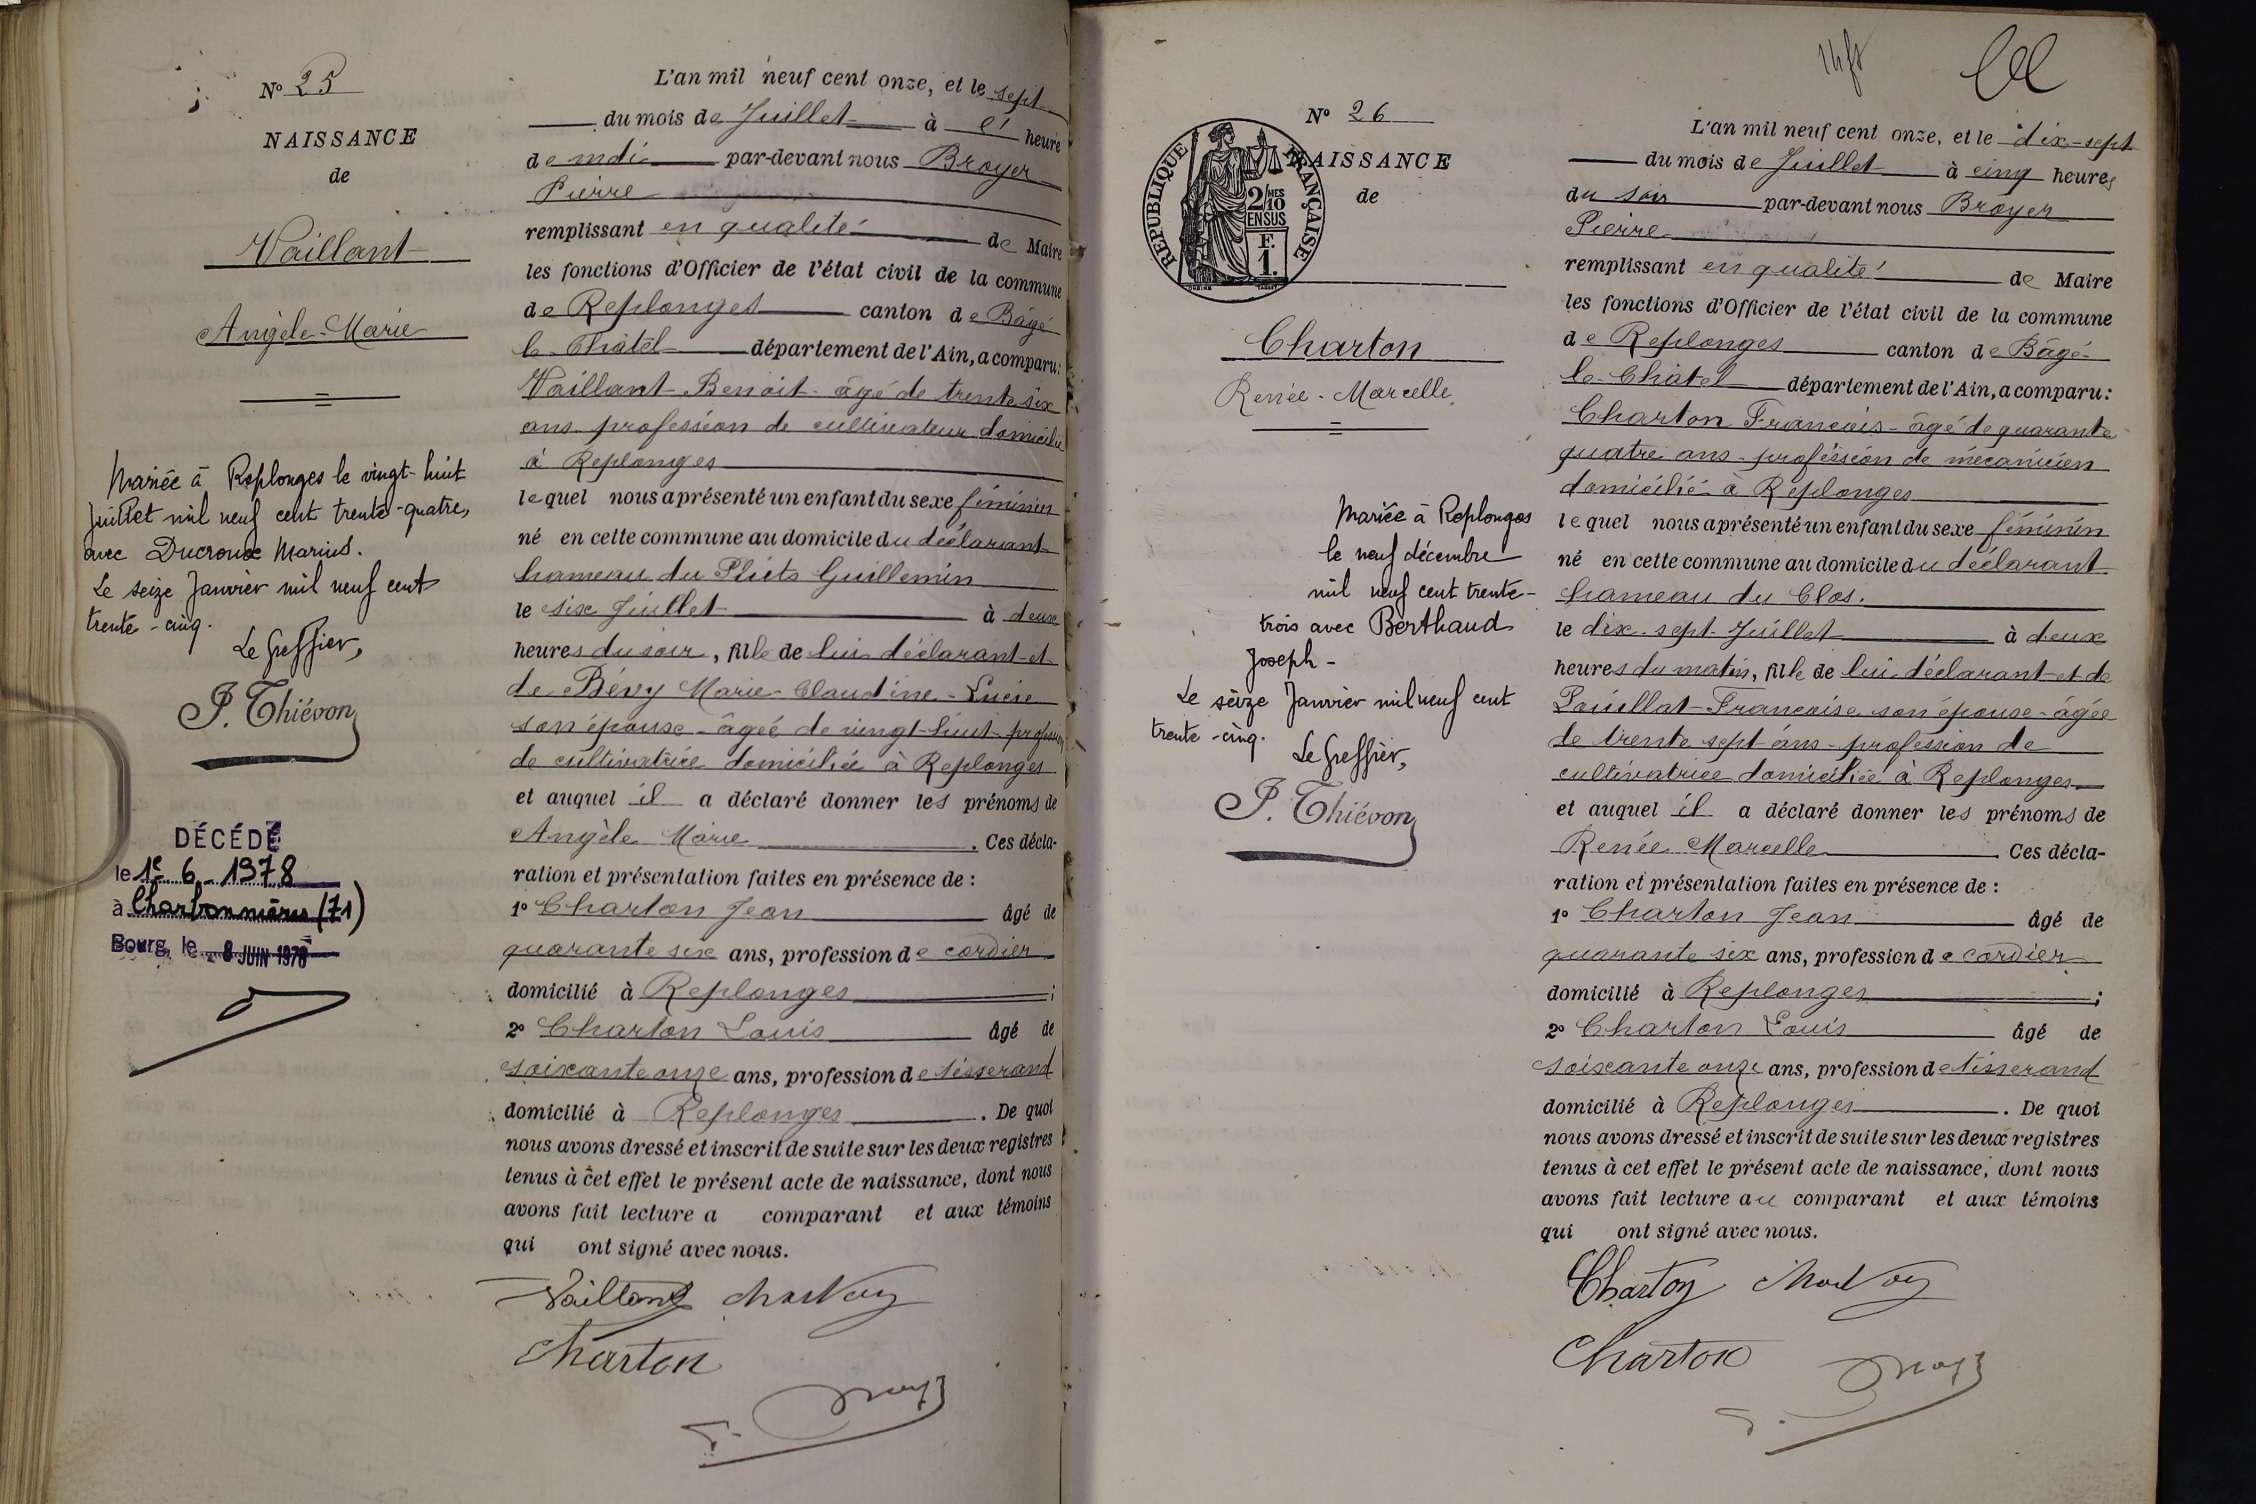 N° 25
NAISSANCE
de
Vaillant
Angèle-Marie
Mariée à Replonges le vingt-huit
juillet mil neuf cent trente-quatre,
avec Ducroux Marius.
Le seize Janvier mil neuf cent
trente-cinq.
Le Greffier,
P. Thiévon
DÉCÉDÉ
le 1er 6 - 1978
à Charbonnières (71)
Bourg, le 8 JUIN 1978
L'an mil neuf cent onze, et le sept
du mois de Juillet à heure
de midi par-devant nous Broyer
Pierre
remplissant en qualité de Maire
les fonctions d'Officier de l'état civil de la commune
de Replonges canton de Bâgé
le Châtel département de l'Ain, a comparu:
Vaillant Benoit âgé de trente six
ans profession de cultivateur domicilié
à Replonges
lequel nous a présenté un enfant du sexe féminin
né en cette commune au domicile du déclarant
hameau du Guillemin
le six Juillet à deux
heures du soir, fille de lui déclarant et
de Bévy Marie-Claudine-Lucie
son épouse âgée de vingt-huit profession
de cultivatrice domiciliée à Replonges
et auquel il a déclaré donner les prénoms de
Angèle Marie. Ces décla-
ration et présentation faites en présence de :
1° Charton Jean âgé de
quarante six ans, profession de cordier
domicilié à Replonges ;
2° Charton Louis âgé de
soixante onze ans, profession de tisserand
domicilié à Replonges. De quoi
nous avons dressé et inscrit de suite sur les deux registres
tenus à cet effet le présent acte de naissance, dont nous
avons fait lecture a comparant et aux témoins
qui ont signé avec nous.
Vaillant
Charton
N° 26
NAISSANCE
de
RÉPUBLIQUE FRANÇAISE
2/10 MES
EN SUS
F.
1.
Charton
Renée-Marcelle
Mariée à Replonges
le neuf décembre
mil neuf cent trente-
trois avec Berthaud
Joseph -
Le seize Janvier mil neuf cent
trente-cinq.
Le Greffier,
P. Thiévon
L'an mil neuf cent onze, et le dix-sept
du mois de Juillet à cinq heures
du soir par-devant nous Broyer
Pierre
remplissant en qualité de Maire
les fonctions d'Officier de l'état civil de la commune
de Replonges canton de Bâgé-
le-Châtel département de l'Ain, a comparu:
Charton François - âgé de quarante
quatre ans - profession de mécanicien
domicilié à Replonges
lequel nous a présenté un enfant du sexe féminin
né en cette commune au domicile du déclarant
hameau du Clos.
le dix-sept Juillet à deux
heures du matin, fille de lui déclarant et de
Françoise son épouse - âgée
de trente sept ans - profession de
cultivatrice domiciliée à Replonges
et auquel il a déclaré donner les prénoms de
Renée Marcelle. Ces décla-
ration et présentation faites en présence de :
1° Charton Jean âgé de
quarante six ans, profession de cordier
domicilié à Replonges ;
2° Charton Louis âgé de
soixante onze ans, profession de tisserand
domicilié à Replonges. De quoi
nous avons dressé et inscrit de suite sur les deux registres
tenus à cet effet le présent acte de naissance, dont nous
avons fait lecture au comparant et aux témoins
qui ont signé avec nous.
Charton
Charton